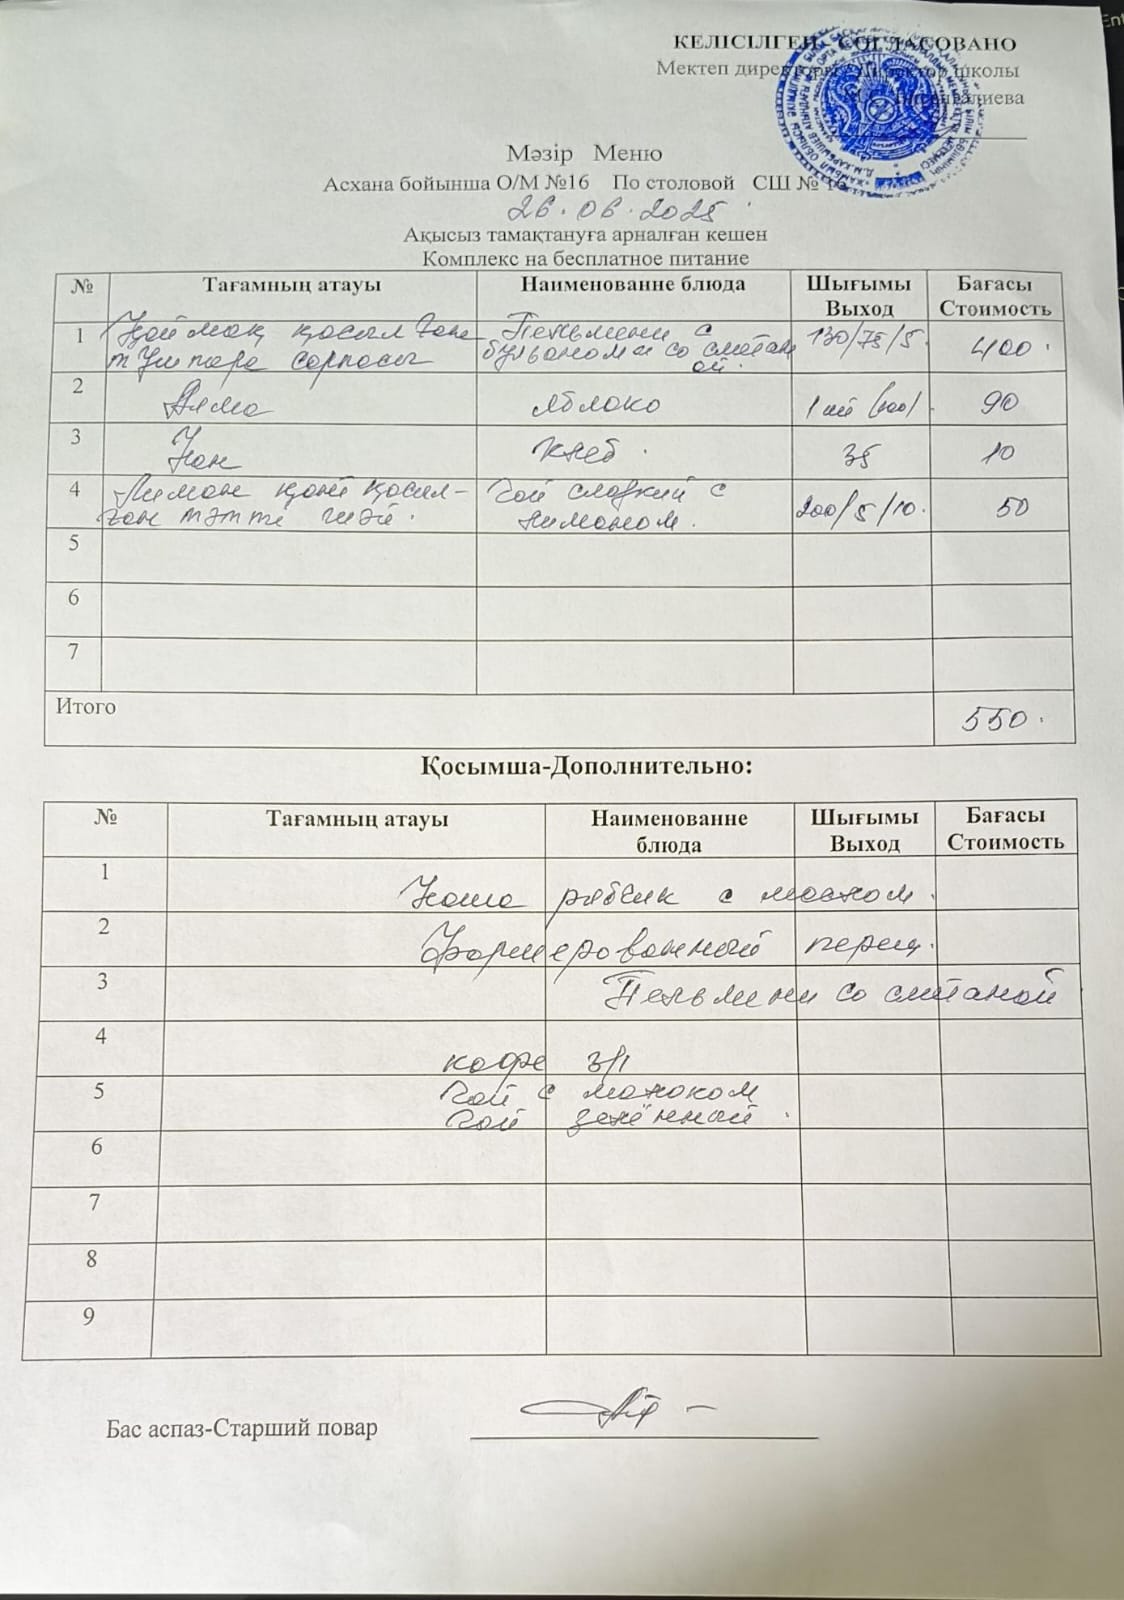 КЕЛІСІЛГЕН СОГЛАСОВАНО
Мектеп директоры Директор школы
Мәзір Меню
Асхана бойынша О/М №16 По столовой СШ № 16
26.06.2025
Ақысыз тамақтануға арналған кешен
Комплекс на бесплатное питание
№ Тағамның атауы Наименованне блюда Шығымы Выход Бағасы Стоимость
1 Қаймақ қосылған тұшпара сорпасы Пельмени с бульоном и со сметаной. 130/75/5. 400.
2 Алма яблоко 1 шт (100) 90
3 Нан хлеб. 35 10
4 Лимон қант қосылған тәтті шәй. Чай сладкий с лимоном. 200/5/10. 50
5
6
7
Итого 550.
Қосымша-Дополнительно:
№ Тағамның атауы Наименованне блюда Шығымы Выход Бағасы Стоимость
1 Каша рябчик с маслом.
2 Фаршированный перец.
3 Пельмени со сметаной
4 кофе 3/1
5 Чай с молоком
Чай зелённый.
6
7
8
9
Бас аспаз-Старший повар